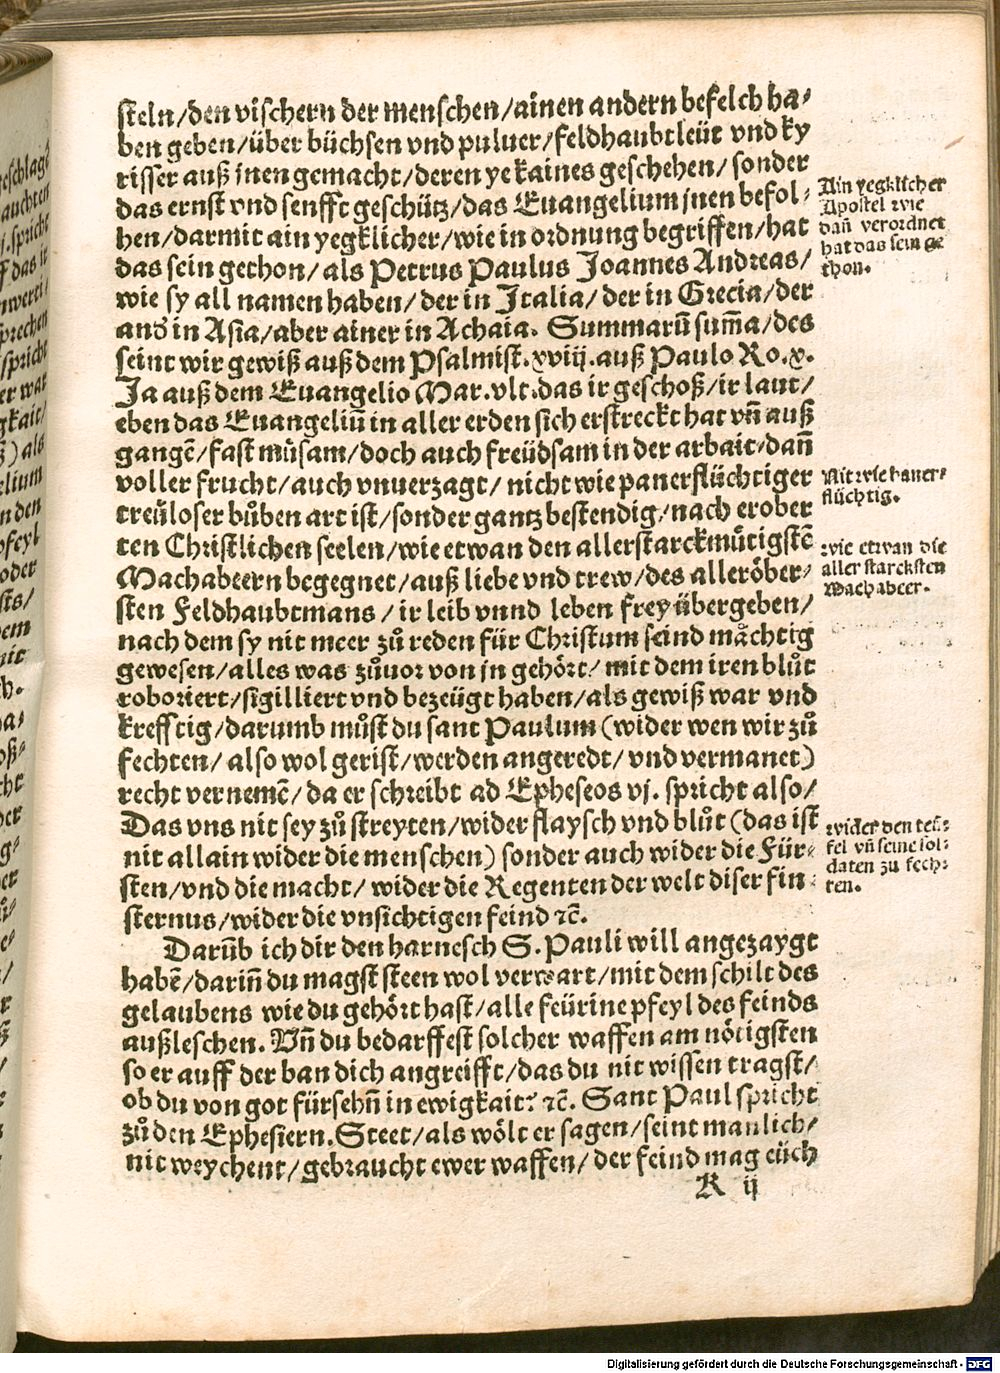 steln/den vischern der menschen/ainen andern befelch ha⸗
ben geben/über büchsen vnd puluer/feldhaubtleüt vnd ky
risser auß jnen gemacht/deren ye kaines geschehen/sonder
das ernst vnd sensst geschütz/das Euangelium jnen befol⸗
hen/darmit ain yegklicher/wie in ordnung begriffen/hat
das sein gethon/als Petrus Paulus Joannes Andreas/
wie sy all namen haben/der in Italia/der in Grecia/der
and̕ in Asia/aber ainer in Achaia. Summarū sum̄a/des
seint wir gewiß auß dem Psalmist.xviij.auß Paulo Ro.x.
Ja auß dem Euangelio Mar.vlt.das ir geschoß/ir laut/
eben das Euangeliū in aller erden sich erstreckt hat vn̄ auß
gangē/fast müsam/doch auch freüdsam in der arbait/dan̄
voller frucht/auch vnuerzagt/nicht wie panerflüchtiger
treüloser bůben art ist/sonder gantz bestendig/nach erober
ten Christlichen seelen/wie etwan den allerstarckmůtigstē
Machabeern begegnet/auß liebe vnd trew/des alleröber⸗
sten Feldhaubtmans/ir leib vnnd leben frey übergeben/
nach dem sy nit meer zů reden für Christum seind mächtig
gewesen/alles was zůuor von jn gehört/mit dem iren blůt
roboriert/sigilliert vnd bezeügt haben/als gewiß war vnd
krefftig/darumb můst du sant Paulum (wider wen wir zů
fechten/also wol gerist/werden angeredt/vnd vermanet)
recht vernemē/da er schreibt ad Epheseos vj. spricht also/
Das vns nit sey zů streyten/wider flaysch vnd blůt (das ist
nit allain wider die menschen) sonder auch wider die Für⸗
sten/vnd die macht/wider die Regenten der welt diser fin⸗
sternus/wider die vnsichtigen feind ⁊c̄.
Darūb ich dir den harnesch S. Pauli will angezaygt
habē/darin̄ du magst steen wol verwart/mit dem schilt des
gelaubens wie du gehört hast/alle feürine pfeyl des feinds
außleschen. Vn̄ du bedarffest solcher waffen am nötigsten
so er auff der ban dich angreifft/das du nit wissen tragst/
ob du von got fürsehn̄ in ewigkait? ⁊c̄. Sant Paul spricht
zů den Ephesiern. Steet/als wölt er sagen/seint manlich/
nit weychent/gebraucht ewer waffen/der feind mag eüch
K ij
Ain yegklicher
Apostel wie
dan̄ verordnet
hat das sein ge
thon.
Nit wie baner⸗
flüchtig.
wie etwan die
aller starcksten
Machabeer.
wider den teü⸗
fel vn̄ seine sol⸗
daten zu fech⸗
ten.
Digitalisierung gefördert durch die Deutsche Forschungsgemeinschaft - DFG